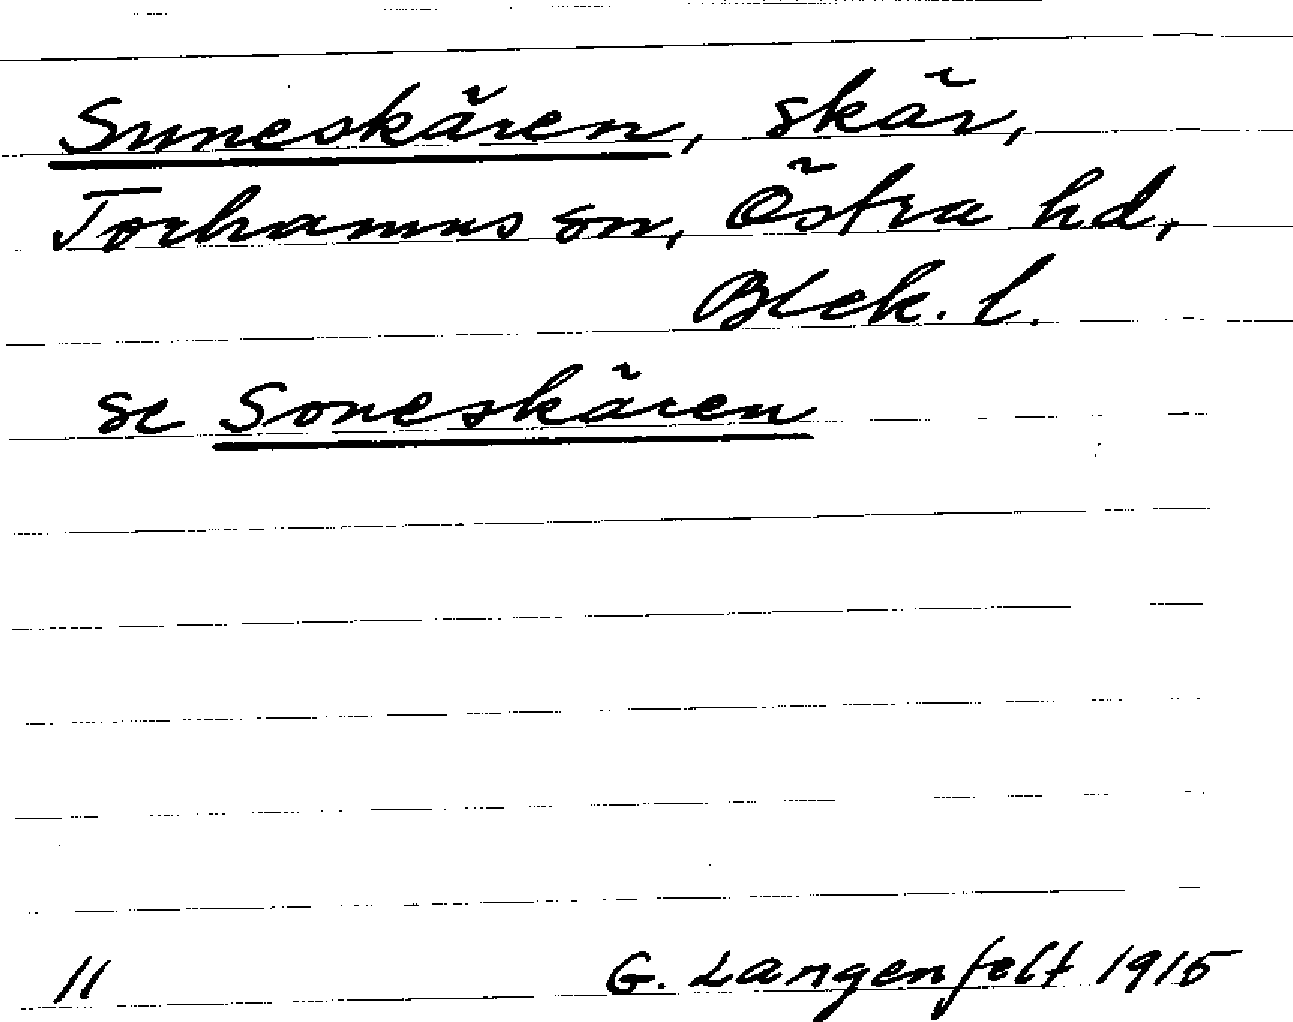 Suneskären, skär,
Torhamns sn, Östra hd,
Blek. l.
se Soneskären
11 G. Langenfelt 1915